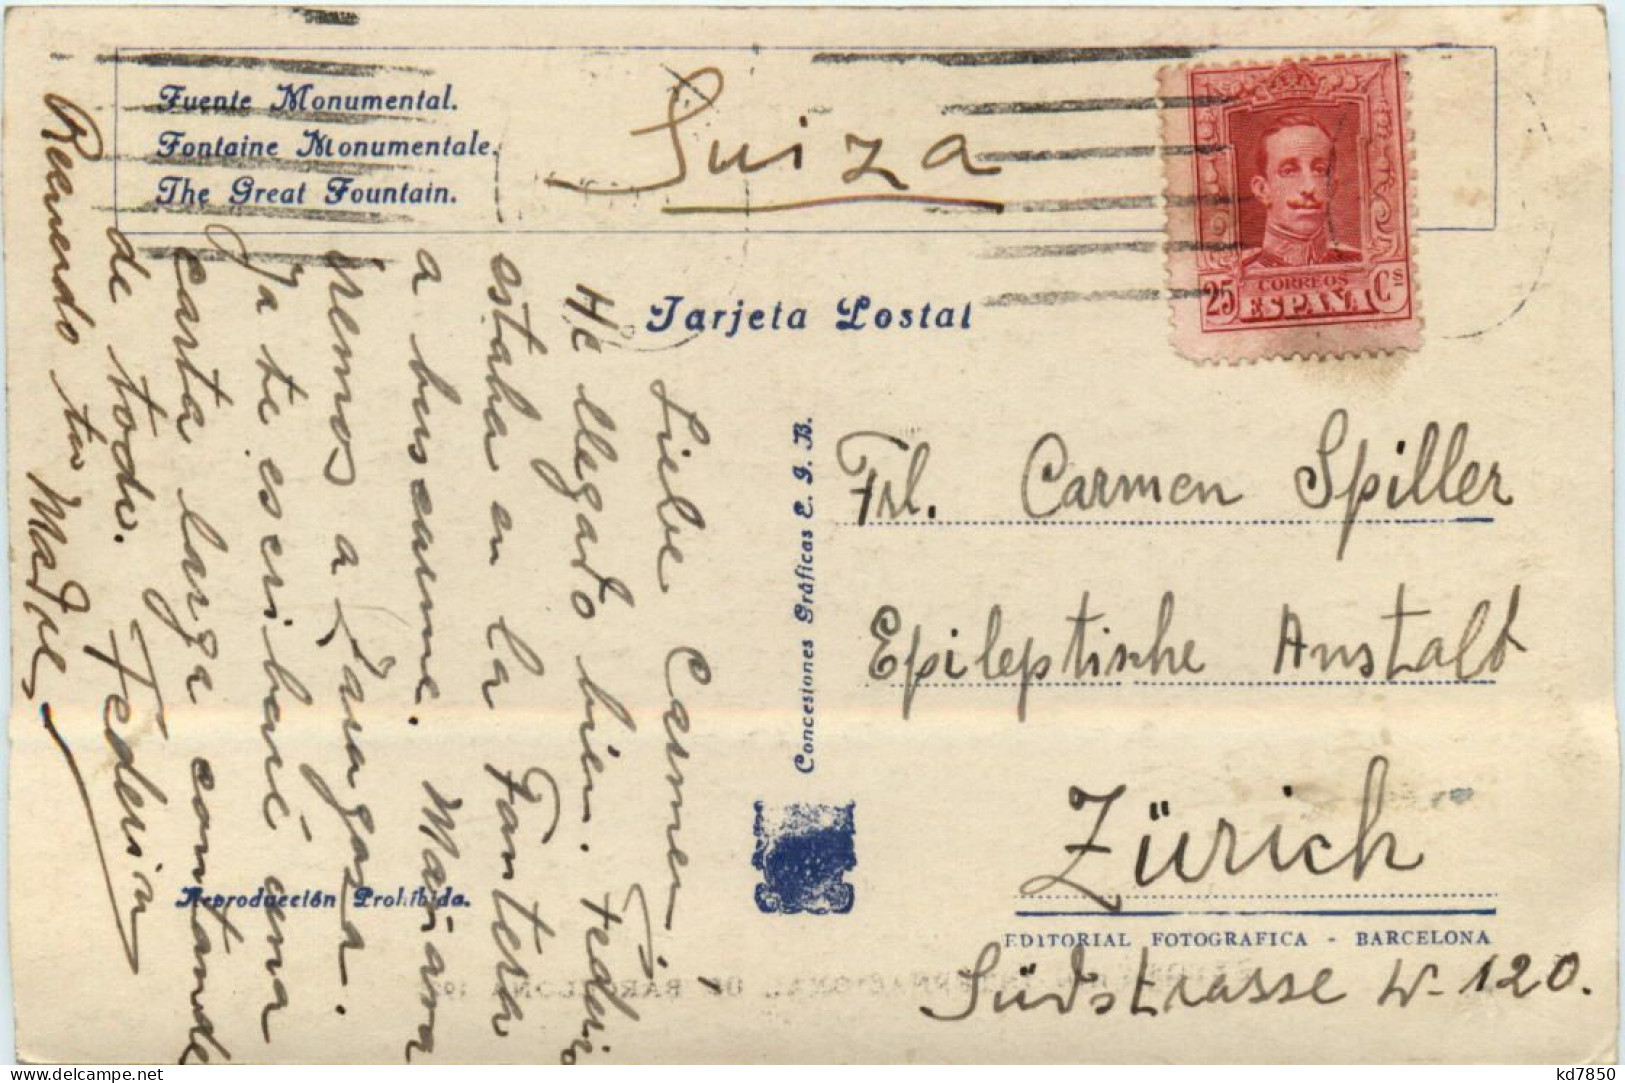 Fuente Monumental.
Fontaine Monumentale.
The Great Fountain.
Suiza
CORREOS
25 ESPAÑA Cs
Tarjeta Postal
Liebe Carmen
He llegado bien. Federico
estaba en la Frontera
a buscarme. Mañana
iremos a Zaragoza.
Ya te escribaré una
carta larga contande
de todo. Federico
Recuerdo tu Madre
Concesiones Gráficas E. I. B.
Frl. Carmen Spiller
Epileptische Anstalt
Zürich
Südstrasse 120.
Reproducción Prohibida.
EDITORIAL FOTOGRAFICA - BARCELONA
INTERNACIONAL DE BARCELONA
kd7850